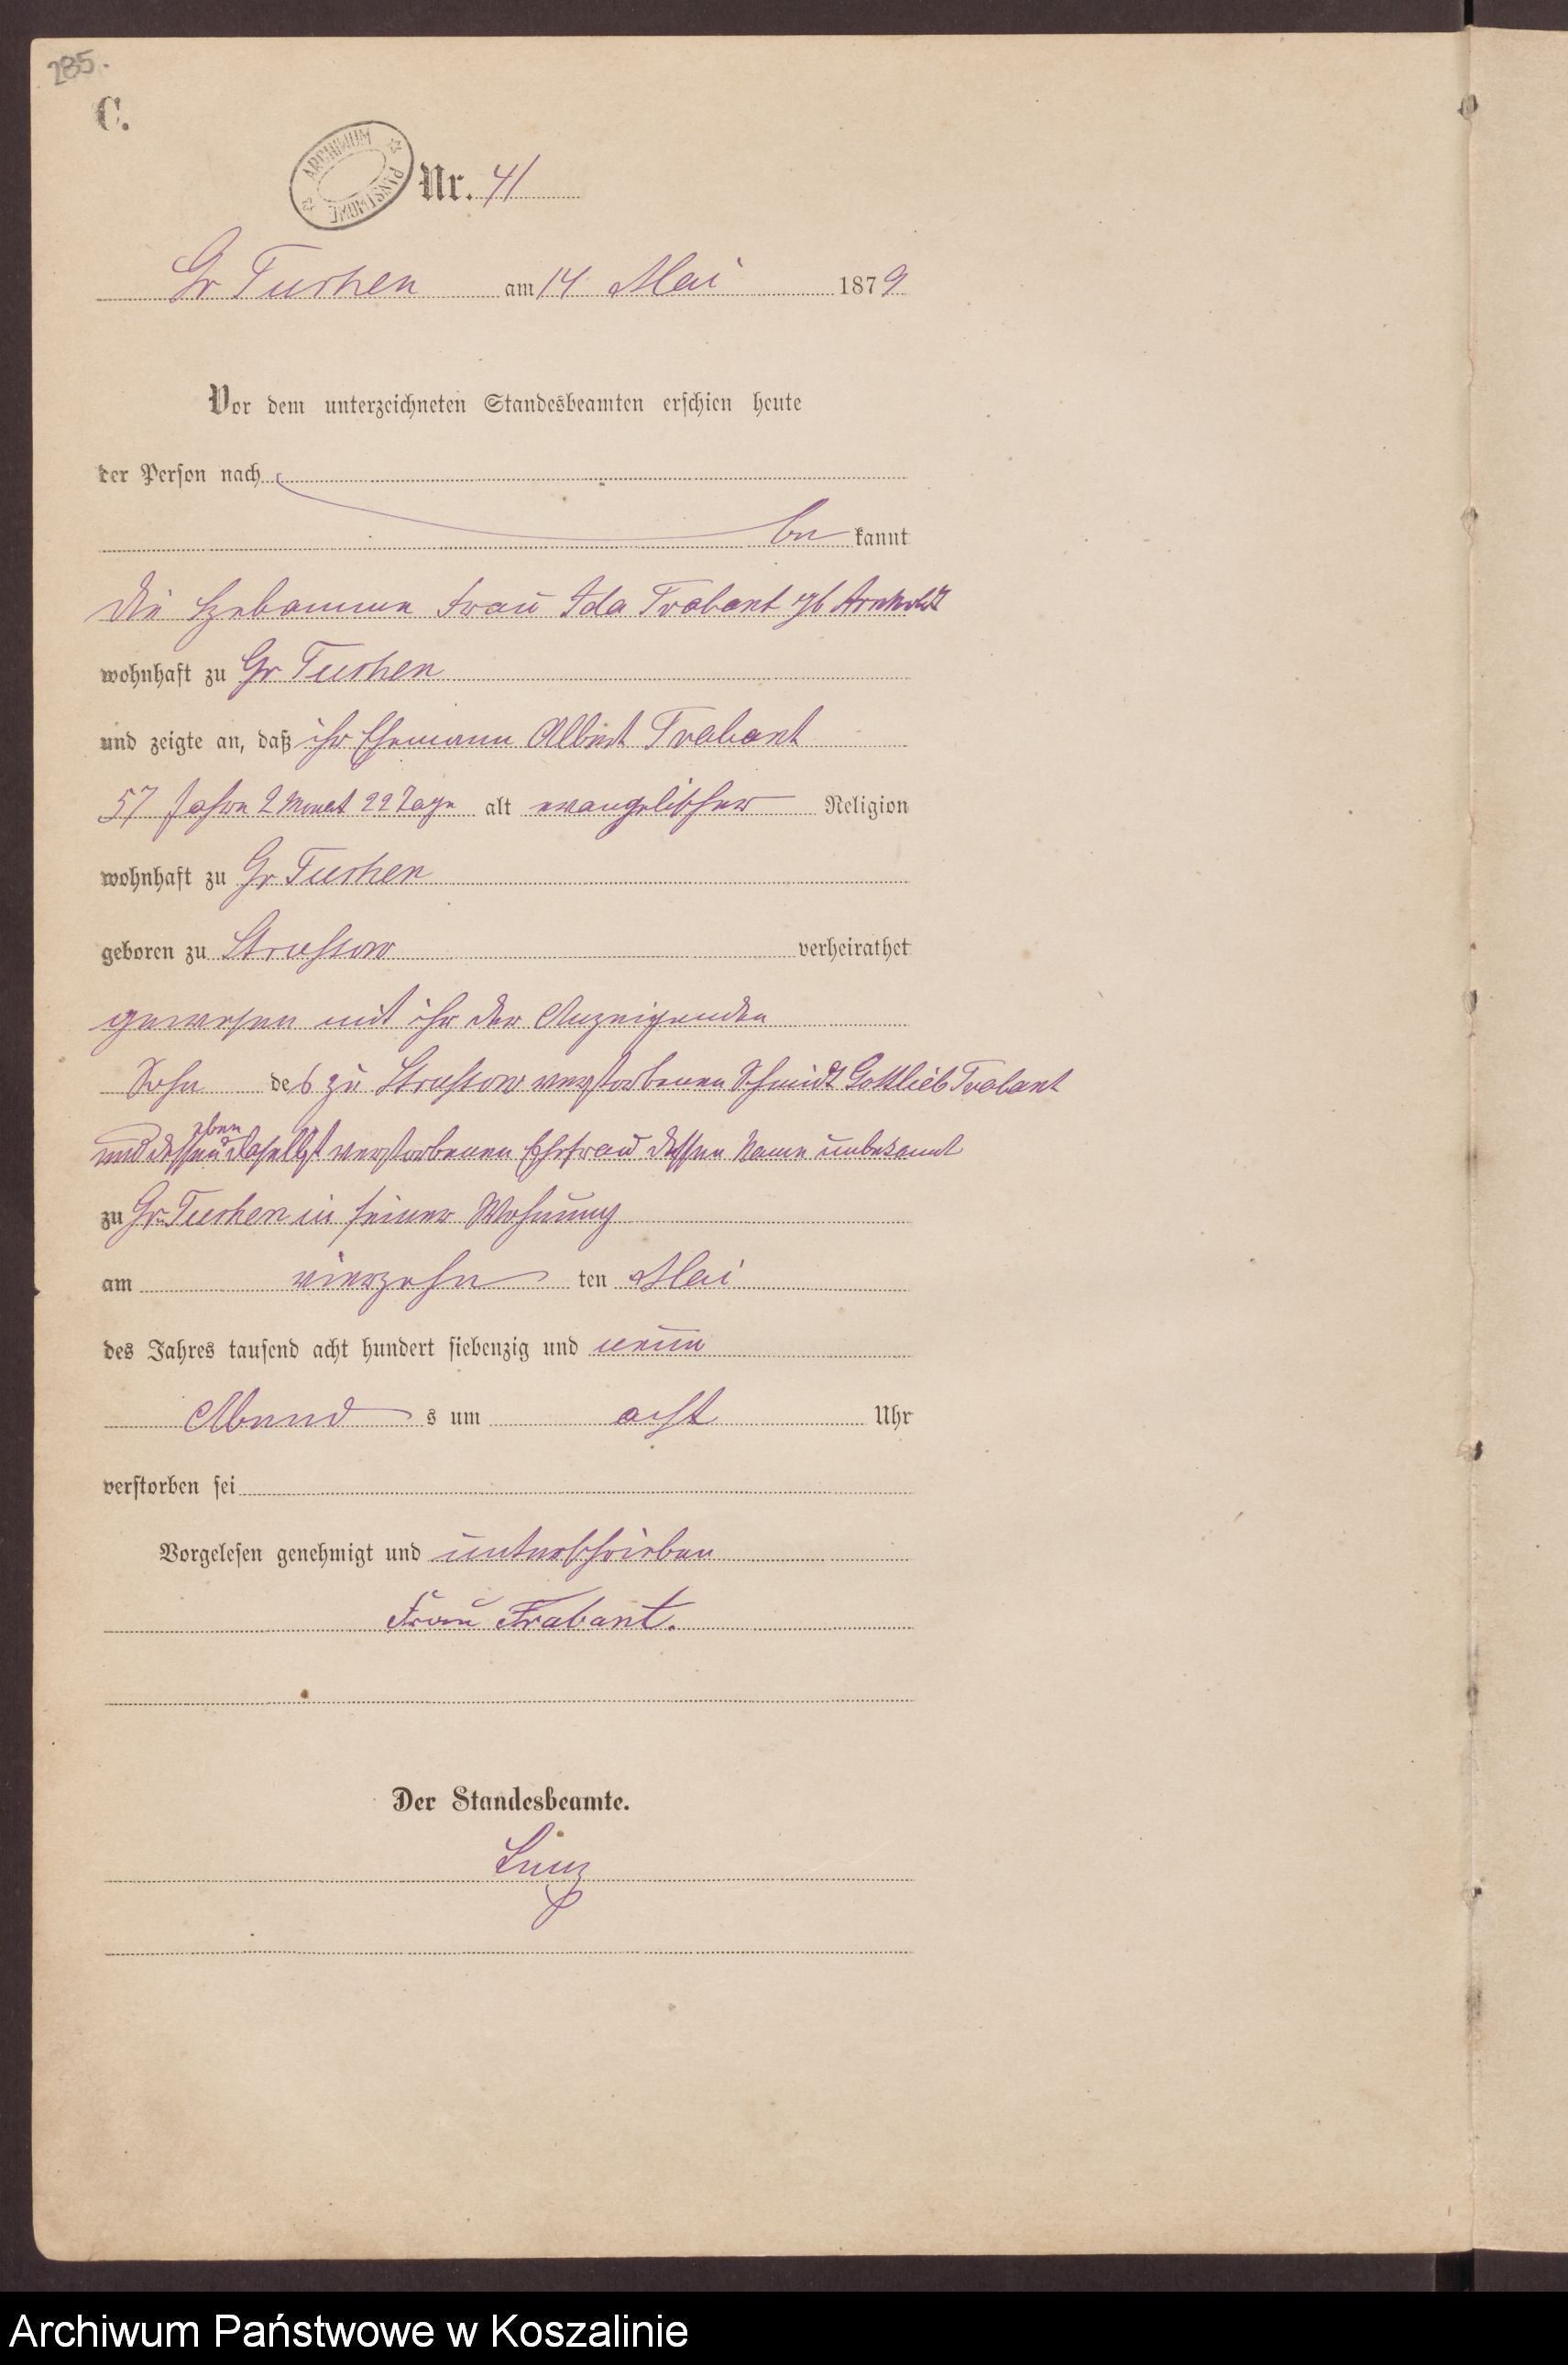 285.
C.
ARCHIWUM PAŃSTWOWE
Nr. 41
Gr Tuchen am 14 Mai 1879
Vor dem unterzeichneten Standesbeamten erschien heute
der Person nach
be kannt
die Hebamme Frau Ida Trabant
wohnhaft zu Gr Tuchen
und zeigte an, daß ihr Ehemann Albert Trabant
57 Jahre 2 Monat 22 Tage alt evangelischer Religion
wohnhaft zu Gr Tuchen
geboren zu Strussow verheirathet
gewesen mit ihr der Anzeigenden
Sohn des zu Strussow verstorbenen Schmidt Gottlieb Trabant
und dessen eben daselbst verstorbenen Ehefrau dessen Name unbekannt
zu Gr. Tuchen in seiner Wohnung
am vierzehn ten Mai
des Jahres tausend acht hundert siebenzig und neun
Abend s um acht Uhr
verstorben sei
Vorgelesen genehmigt und unterschrieben
Frau Trabant.
Der Standesbeamte.
Archiwum Państwowe w Koszalinie